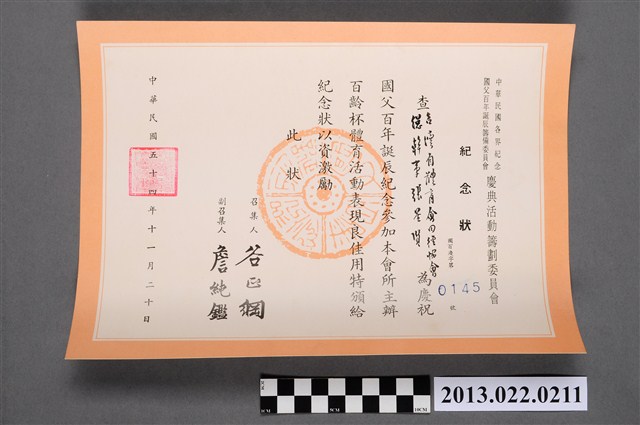 中華民國各界紀念
國父百年誕辰籌備委員會
慶典活動籌劃委員會
紀念狀
國百活字第
0145
號
查
為慶祝
國父百年誕辰紀念參加本會所主辦
百齡杯體育活動表現良佳用特頒給
紀念狀以資激勵
此狀
召集人 谷正綱
副召集人 詹純鑑
中華民國五十四年十一月二十日
0CM
5CM
10CM
2013.022.0211